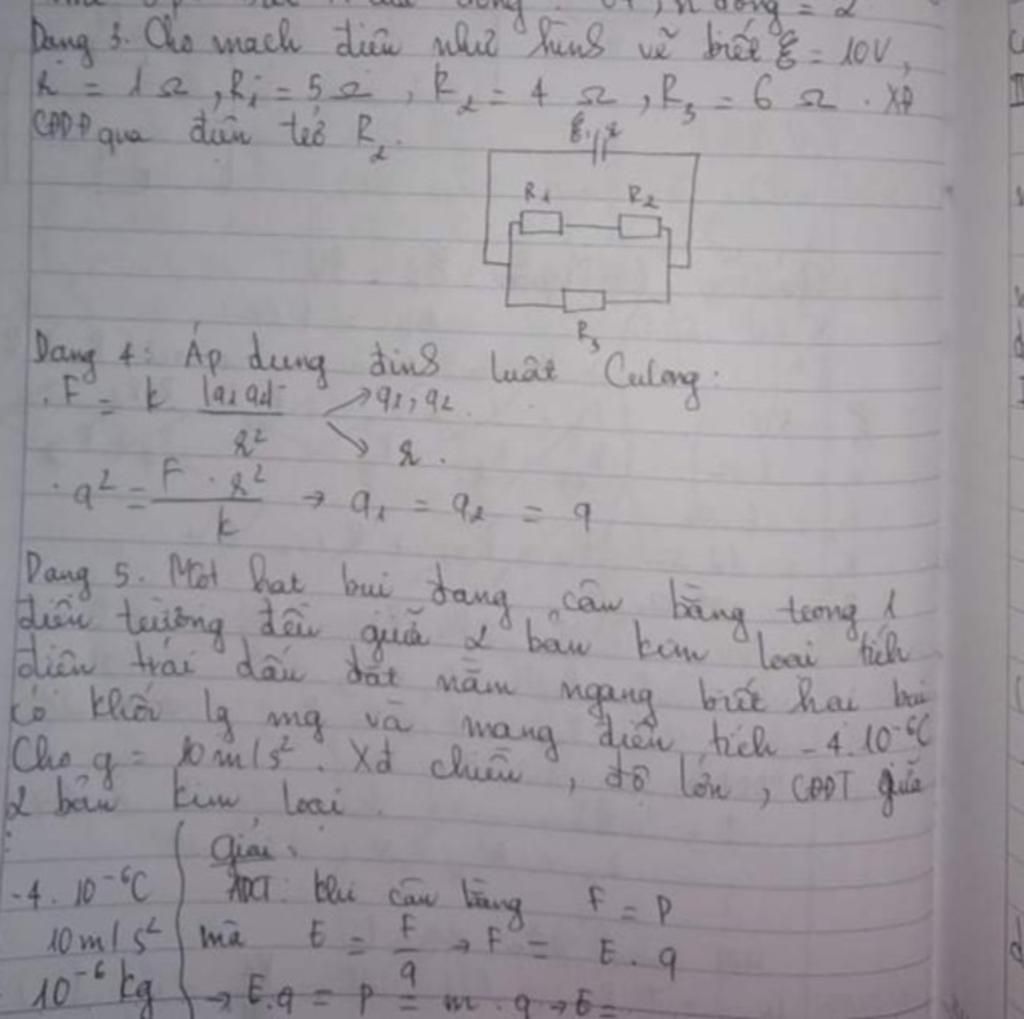 dòng = 2
Dạng 3. Cho mạch điện như hình vẽ biết ξ = 10V,
r = 1Ω, R₁ = 5Ω, R₂ = 4 Ω, R₃ = 6 Ω. XĐ
CĐDĐ qua điện trở R₂.
ξ, r
R₁ R₂
R₃
Dạng 4: Áp dụng định luật Culong:
. F = k |q₁q₂| / r² → q₁, q₂.
↘ r.
. q² = F . r² / k → q₁ = q₂ = q
Dạng 5. Một hạt bụi đang cân bằng trong 1
điện trường đều giữa 2 bản kim loại tích
điện trái dấu đặt nằm ngang biết hai bụi
có khối lg mg và mang điện tích -4.10⁻⁶C
Cho g = 10m/s². Xđ chiều, độ lớn, CĐĐT giữa
2 bản kim loại.
Giải
-4.10⁻⁶C ADCT: khi cân bằng F = P
10m/s² mà E = F / q → F = E.q
10⁻⁶ kg → E.q = P = m.g → E =